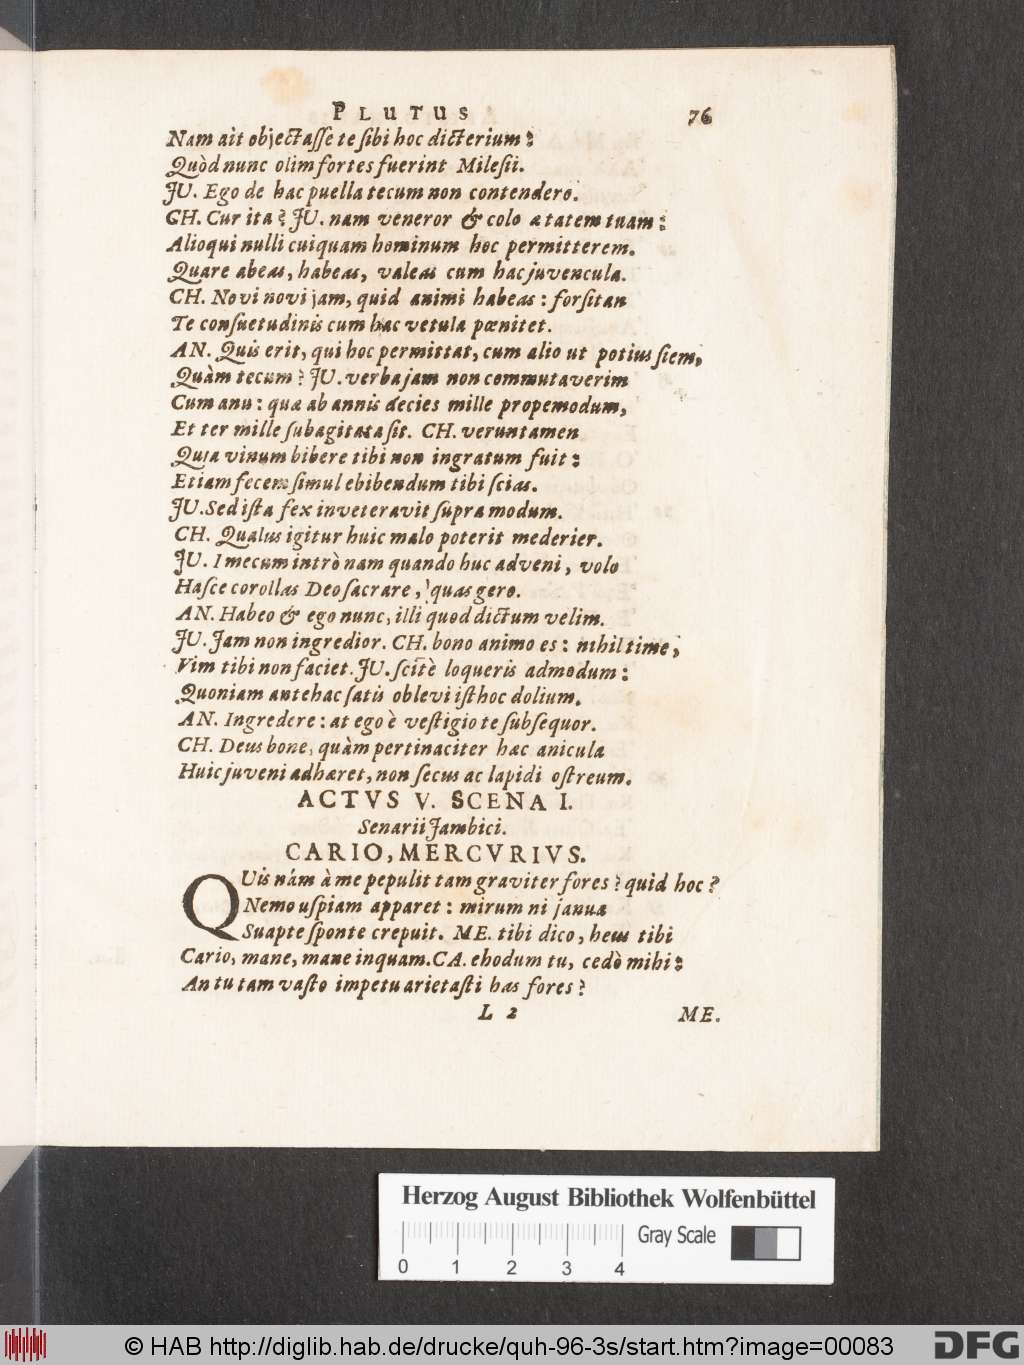 PLUTUS 76
Nam ait objectasse te sibi hoc dicterium:
Quòd nunc olim fortes fuerint Milesii.
JU. Ego de hac puella tecum non contendero.
CH. Cur ita? JU. nam veneror & colo ætatem tuam:
Alioqui nulli cuiquam hominum hoc permitterem.
Quare abeas, habeas, valeas cum hac juvencula.
CH. Novi novi jam, quid animi habeas: forsitan
Te consuetudinis cum hac vetula pœnitet.
AN. Quis erit, qui hoc permittat, cum alio ut potius siem,
Quàm tecum? JU. verba jam non commutaverim
Cum anu: quæ ab annis decies mille propemodum,
Et ter mille subagitata sit. CH. veruntamen
Quia vinum bibere tibi non ingratum fuit:
Etiam fecem simul ebibendum tibi scias.
JU. Sed ista fex inveteravit supra modum.
CH. Qualus igitur huic malo poterit mederier.
JU. I mecum intrò nam quando huc adveni, volo
Hasce corollas Deo sacrare, quas gero.
AN. Habeo & ego nunc, illi quod dictum velim.
JU. Jam non ingredior. CH. bono animo es: nihil time,
Vim tibi non faciet. JU. scitè loqueris admodum:
Quoniam antehac satis oblevi isthoc dolium.
AN. Ingredere: at ego è vestigio te subsequor.
CH. Deus bone, quàm pertinaciter hæc anicula
Huic juveni adhæret, non secus ac lapidi ostreum.
ACTVS V. SCENA I.
Senarii Jambici.
CARIO, MERCVRIVS.
QUis nám à me pepulit tam graviter fores? quid hoc?
Nemo uspiam apparet: mirum ni janua
Suapte sponte crepuit. ME. tibi dico, heus tibi
Cario, mane, mane inquam. CA. ehodum tu, cedò mihi:
An tu tam vasto impetu arietasti has fores?
L 2 ME.
Herzog August Bibliothek Wolfenbüttel
Gray Scale
0 1 2 3 4
© HAB http://diglib.hab.de/drucke/quh-96-3s/start.htm?image=00083
DFG